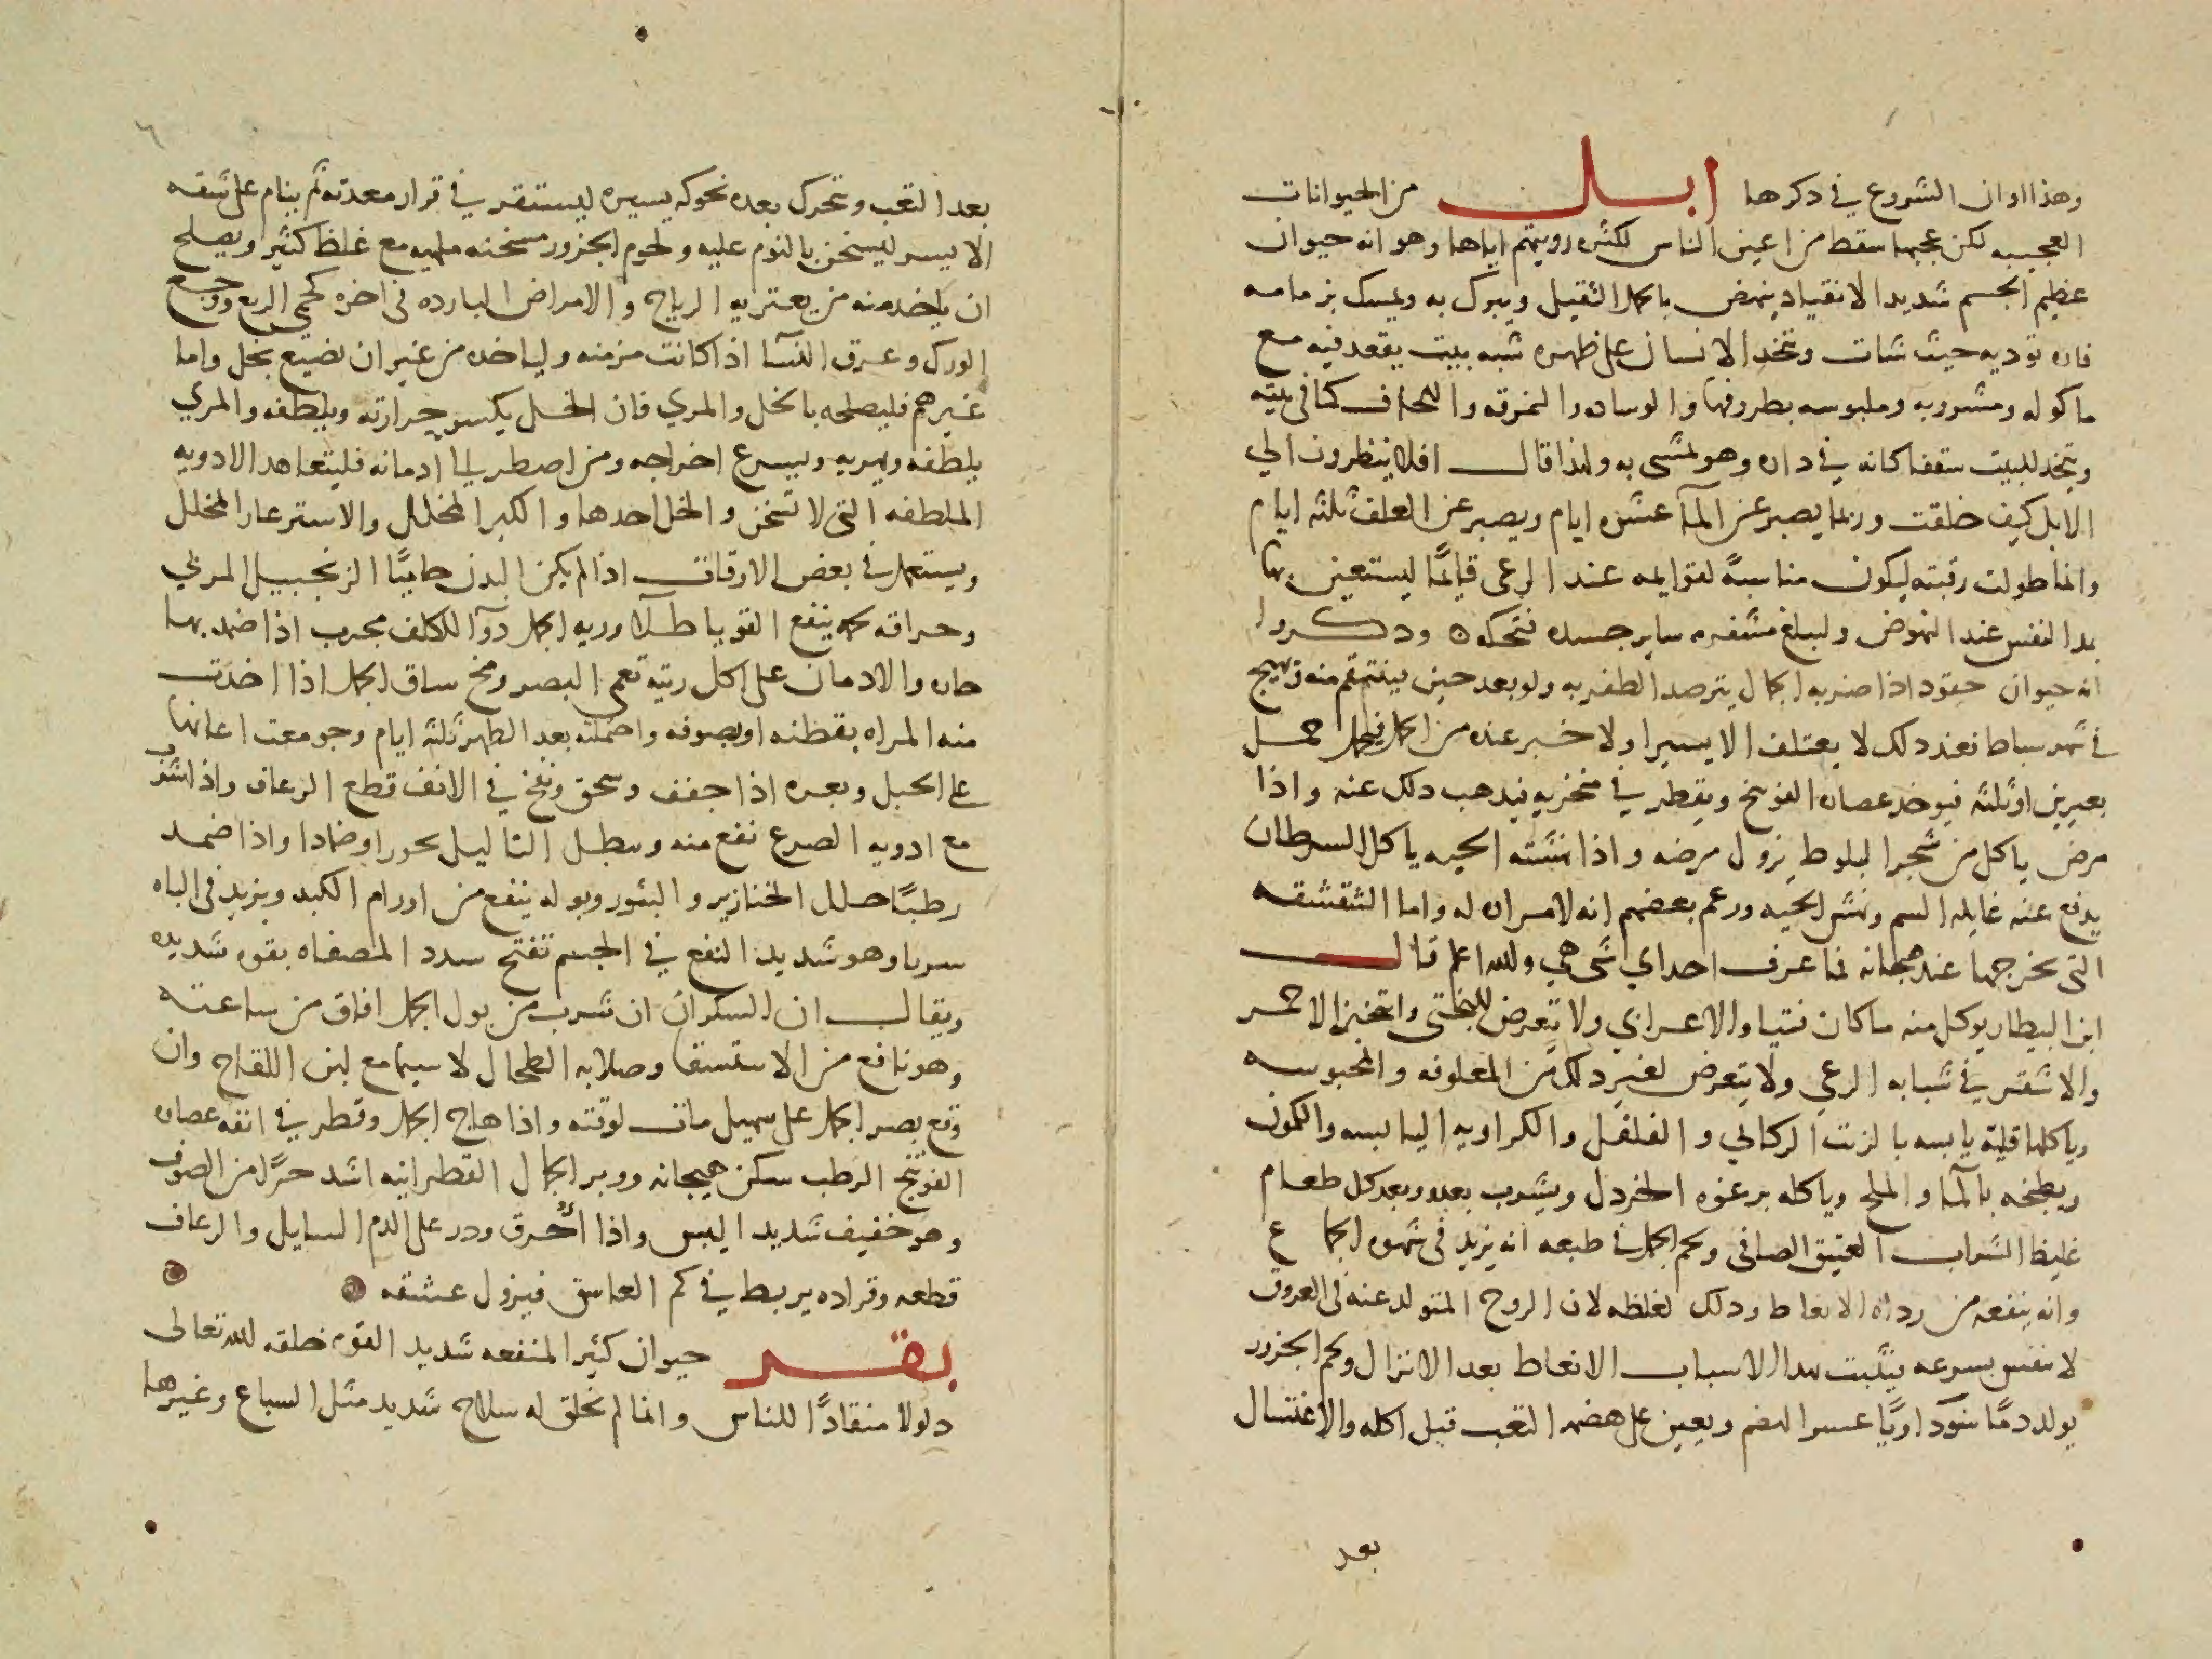 وهذا اوان الشروع في دكرها ابل من الحيوانات
العجيبه لكن عجبها سقط من اعين الناس لكثره رويتهم اياها وهو انه حيوان
عظيم الجسم شديد الانقياد ينهض بالحمل الثقيل ويبرك به ويمسك بزمامه
فاره توديه حيث شات وتتخد الانسان على ظهره شبه بيت يقعد فيه مع
ماكوله ومشروبه وملبوسه بظروفها والوساده والنمرقه واللحاف كما في بيته
ويتخد للبيت سقفا كانه في داره وهو يمشى به ولهذا قال افلا ينظرون الي
الابل كيف خلقت وربما يصبر عن المآ عشره ايام ويصبر عن العلف ثلثه ايام
وانما طولت رقبته ليكون مناسبة لقوايمه عند الرعى قايمًا ليستعين بها
بمد النفس عند النهوض وليبلغ مشفره ساير جسده فتحكه ودكروا
انه حيوان حقود اذا ضربه الجمال يترصد الظفر به ولو بعد حين فينتقم منه ويهيج
في شهر سباط فعند دلك لا يعتلف الا يسيرا ولا خبر عنده من الحمل فيحمل حمل
بعيرين او ثلثه فيوخد عصاره الفوتنج ويقطر في منخريه فيدهب دلك عنه واذا
مرض ياكل من شجر البلوط يزول مرضه واذا نهشته الحيه ياكل السرطان
يدفع عنه غايله السم ونهش الحيه وزعم بعضهم انه لا مراره له واما الشقشقه
التى يخرجها عند هيجانه فما عرف احد اي شى هي والله اعلم قال
ابن البيطار يوكل منه ما كان فتيا والاعرابي ولا تتعرض للبختى واتخير الاحمر
والاشقر في شبابه الرعي ولا يتعرض لغير دلك من المعلوفه والمحبوسه
وياكلها قليه يابسه بالزيت الركابي والفلفل والكراويه اليابسه والكمون
ويطبخه بالمآ والملح وياكله برغوه الخردل ويشرب بعده وبعد كل طعام
غليظ الشراب العتيق الصافى ولحم الجمل في طبعه انه يزيد في شهوه الجماع
وانه ينفعه من رداه الانعاط ودلك لغلظه لان الروح المتولد عنه في العروق
لا تنفس بسرعه فتثبت بهذا الاسباب الانعاط بعد الانزال ولحم الجزور
يولد دمًا سوداويًا عسر الهضم ويعين على هضمه التعب قبل اكله والاغتسال
بعد
بعد التعب وتحرك بعده تحركه يسيره ليستقر في قرار معدته ثم ينام على شقه
الايسر ليسخن بالنوم عليه ولحوم الجزور مسخنه ملهبه مع غلظ كثير ويصلح
ان ياخد منه من يعتريه الرياح والامراض البارده في اخره كحمى الربع ووجع
الورك وعرق النسآ اذا كانت مزمنه ولياخده من غير ان يصنع بخل واما
غيرهم فليصلحه بالخل والمري فان الخل يكسر حرارته ويلطفه والمري
يلطفه ويهريه ويسرع اخراجه ومن اضطر الى ادمانه فليتعاهد الادويه
الملطفه التى لا تسخن والخل احدها والكبر المخلل والاسترغار المخلل
ويستعمل في بعض الاوقات اذا لم يكن البدن حاميًا الزنجبيل المربي
وحراقه لحمه ينفع القوبا طلآ وريه الجمل دوآ للكلف مجرب اذا ضمد بها
حاره والادمان على اكل ريته تعمى البصر ومخ ساق الجمل اذا اخدت
منه المراه بقطنه او بصوفه واحتملته بعد الطهر ثلثه ايام وجومعت اعانها
على الحبل وبعره اذا جفف وسحق ونفخ في الانف قطع الرعاف واذا شرب
مع ادويه الصرع نفع منه وسطل الثاليل بخورا وضمادا واذا ضمد
رطبًا حلل الخنازير والبثور وبوله ينفع من اورام الكبد ويزيد في الباه
سربا وهو شديد النفع في الجسم تفتح سدد المصفاه بقوه شديده
ويقال ان السكران ان شرب من بول الجمل افاق من ساعته
وهو نافع من الاستسقا وصلابه الطحال لا سيما مع لبن اللقاح وان
وقع بصر الجمل على سهيل مات لوقته واذا هاج الجمل وقطر في انفه عصاره
الفوتنج الرطب سكن هيجانه ووبر الجمال القطرانيه اشد حرًا من الصوف
وهو خفيف شديد اليبس واذا احرق ودر على الدم السايل والرعاف
قطعه وقراده يربط في كم العاشق فيزول عشقه
بقر حيوان كثير المنفعه شديد القوه خلقه الله تعالى
دلولا منقادًا للناس وانما لم يخلق له سلاح شديد مثل السباع وغيرها